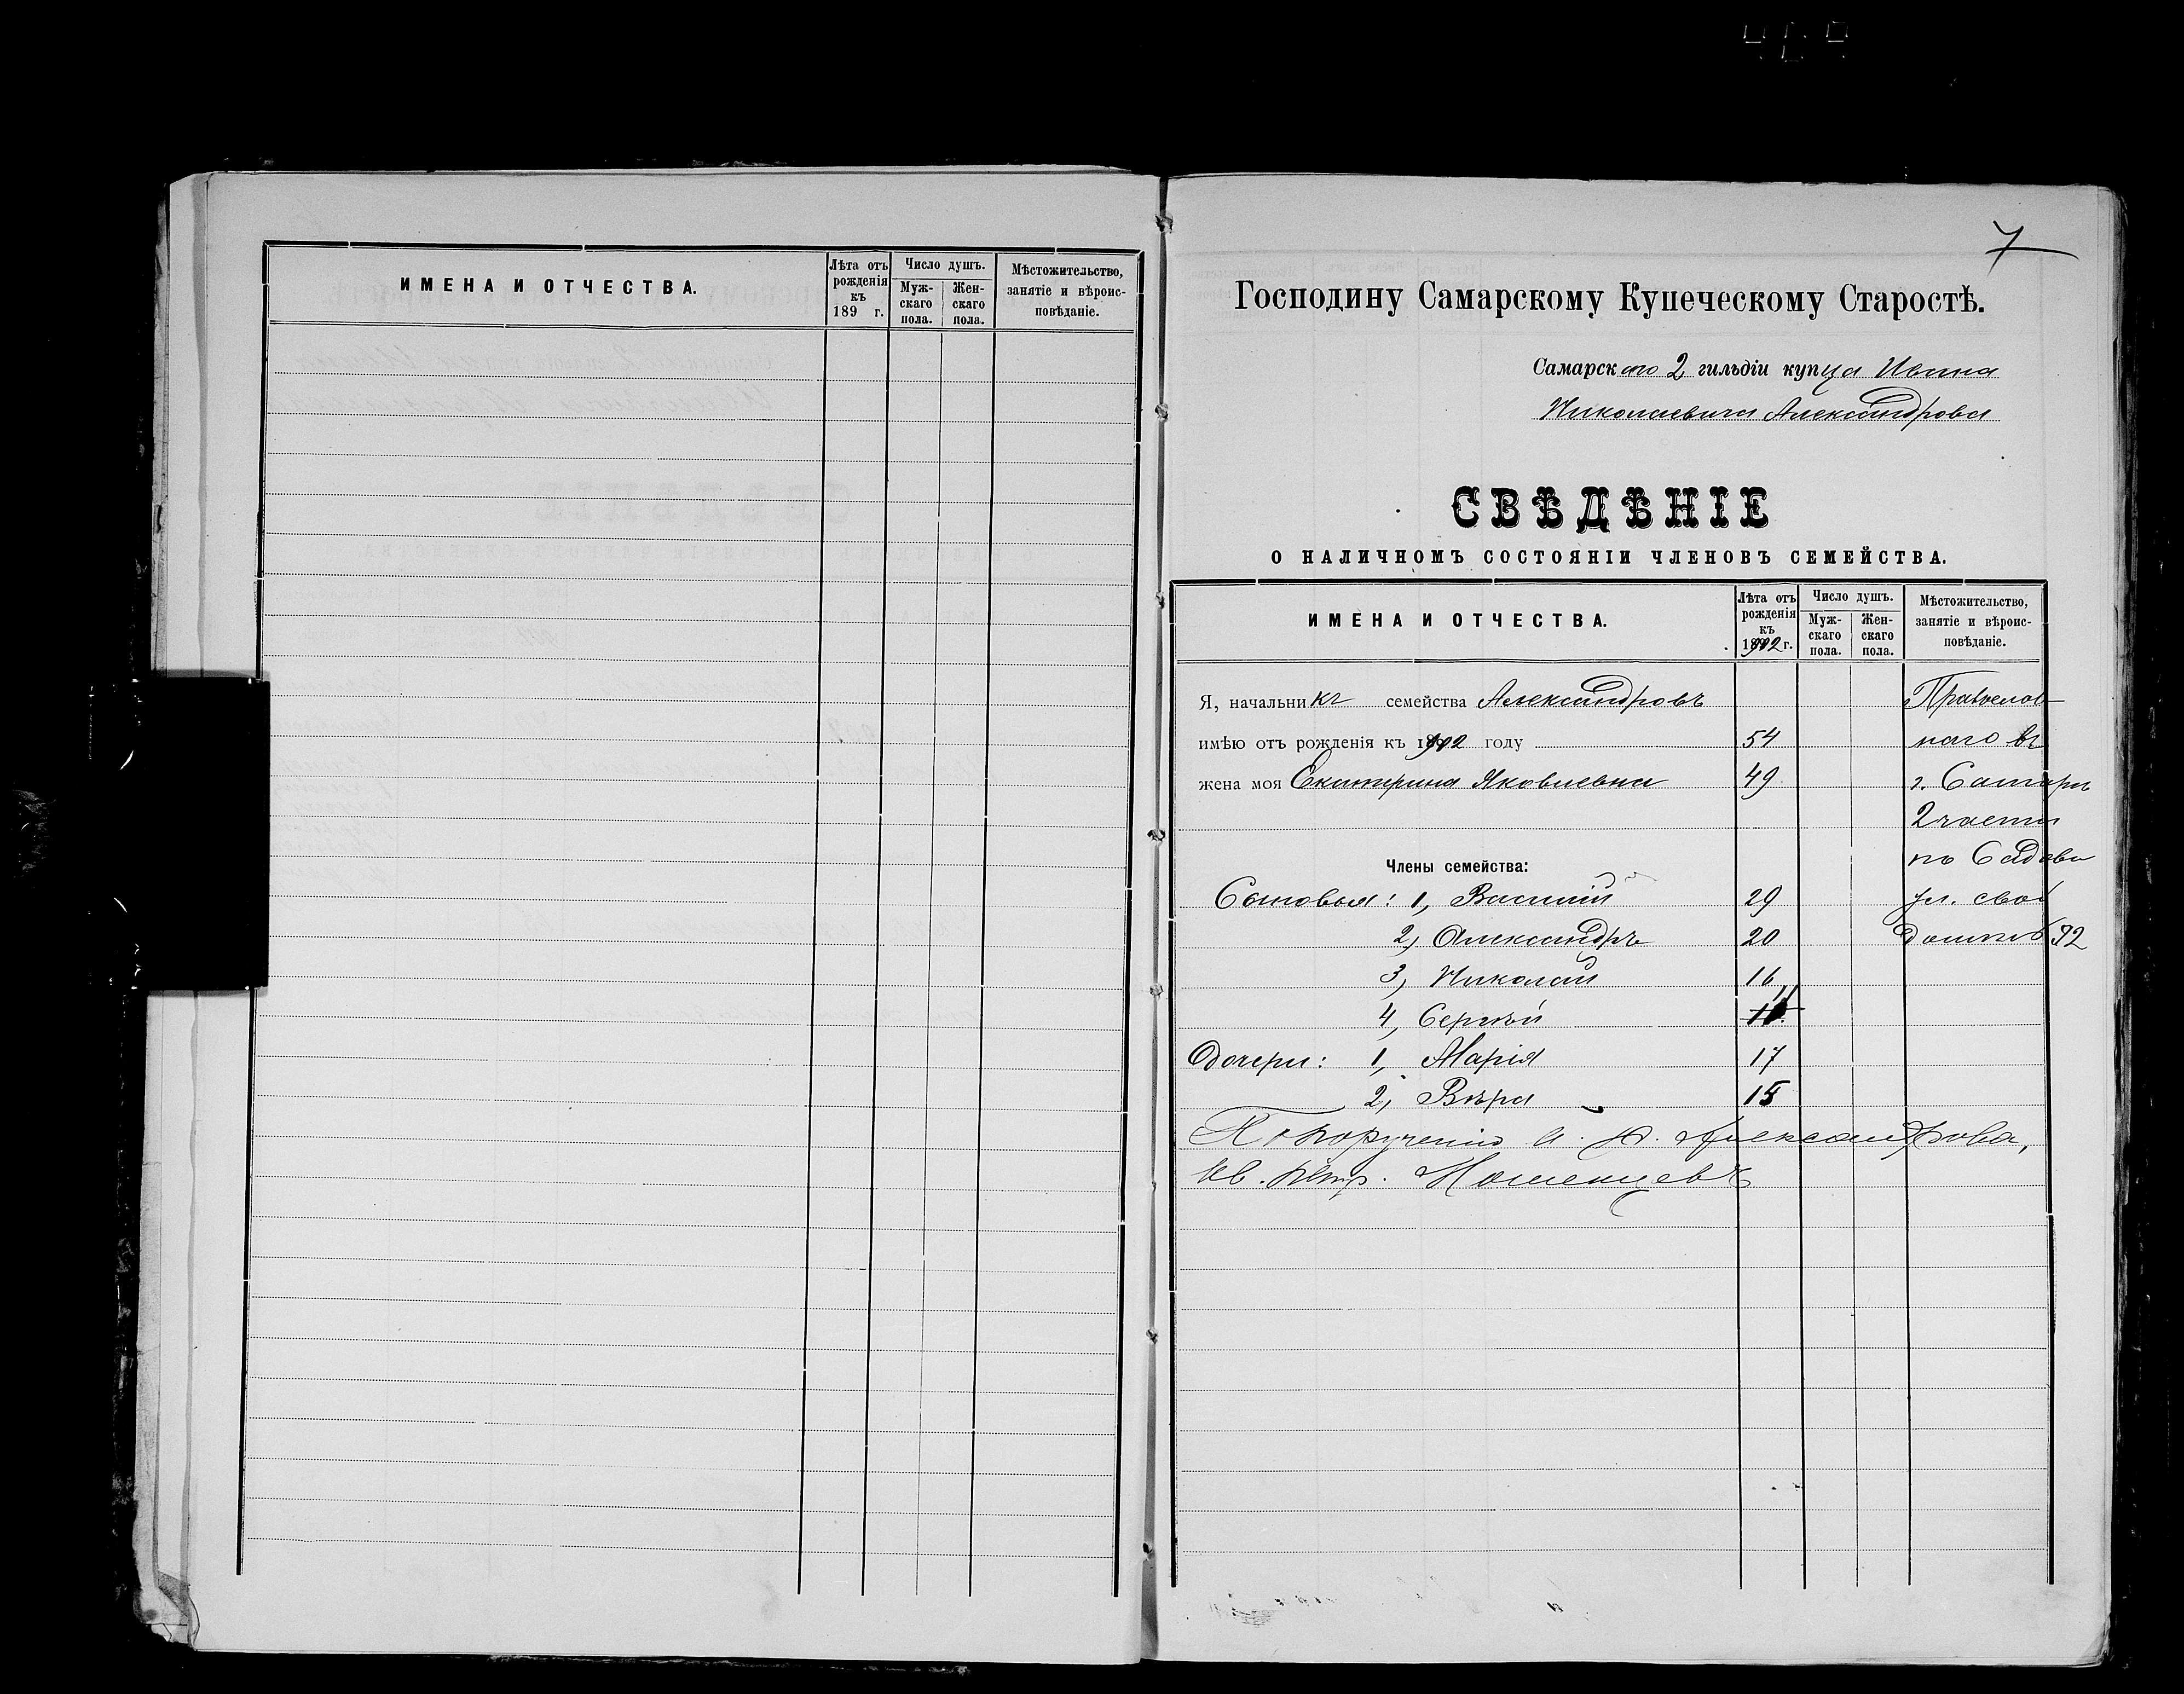 ИМЕНА И ОТЧЕСТВА.
Лѣта отъ рожденія къ 189 г.
Число душъ.
Муж-скаго пола.
Жен-скаго пола.
Мѣстожительство, занятіе и вѣроис-повѣданіе.
7
Господину Самарскому Купеческому Старостѣ.
Самарскаго 2 гильдіи купца Ивана
Николаевича Александрова
СВѢДѢНІЕ
О НАЛИЧНОМЪ СОСТОЯНІИ ЧЛЕНОВЪ СЕМЕЙСТВА.
ИМЕНА И ОТЧЕСТВА.
Лѣта отъ рожденія къ 1902 г.
Число душъ.
Муж-скаго пола.
Жен-скаго пола.
Мѣстожительство, занятіе и вѣроис-повѣданіе.
Я, начальникъ семейства Александровъ Православ-
имѣю отъ рожденія къ 1902 году 54 наго въ
жена моя Екатерина Яковлевна 49 г. Самарѣ
2 части
Члены семейства: по Садовой
Сыновья: 1, Василій 29 ул. свой
2, Александръ 20 домъ № 92
3, Николай 16
4, Сергѣй 11
Дочери: 1, Марія 17
2, Вѣра 15
По порученію И. Н. Александрова,
Ив. Петр.